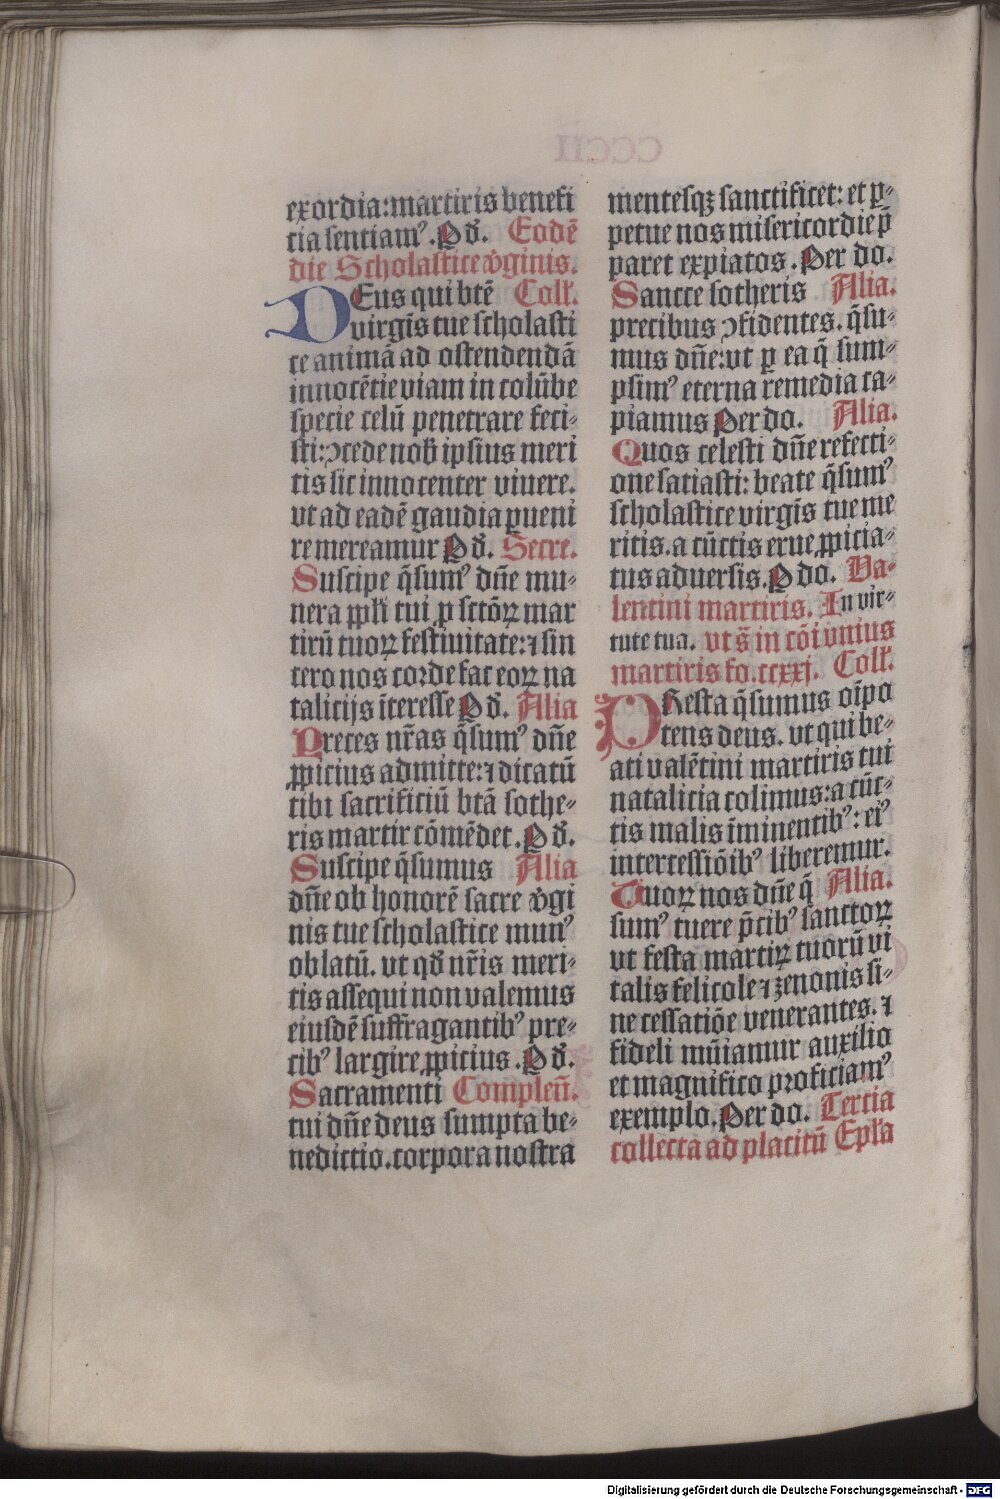 exordia: martiris benefi
cia sentiamꝰ. P̲ dꝰ. Eodē
die Scholastice v̾ginis.
DEus qui btē Coll̛.
virgīs tue scholasti
ce animā ad ostendendā
innocētie viam in colūbe
specie celū penetrare feci⸗
sti: ꝯcede nob̛ ipsius meri
tis sic innocenter viuere.
vt ad eadē gaudia ꝑueni
re mereamur P̲ dꝰ. Secre.
Suscipe q̄sumꝰ dn̄e mu⸗
nera ppl̛i tui ꝓ sctōꝝ mar
tirū tuoꝝ festiuitate: ⁊ sin
cero nos corde fac eoꝝ na
talicijs īteresse P̲ dꝰ. Alia
Preces nr̄as q̄sumꝰ dn̄e
ꝓpicius admitte: ⁊ dicatū
tibi sacrificiū btā sothe⸗
ris martir cōmēdet. P̲ dꝰ.
Suscipe q̄sumus Alia
dn̄e ob honorē sacre v̾gi
nis tue scholastice munꝰ
oblatū. vt qd̛ nr̄is meri⸗
tis assequi non valemus
eiusdē suffragantibꝰ pre⸗
cibꝰ largire ꝓpicius. P̲ dꝰ.
Sacramenti Complen̄.
tui dn̄e deus sumpta be⸗
nedictio. corpora nostra
mentesqꝫ sanctificet: et ꝑ⸗
petue nos misericordie p̄
paret expiatos. Per do.
Sancte sotheris Alia.
precibus ꝯfidentes. q̄su⸗
mus dn̄e: vt ꝑ ea q̄ sum⸗
psimꝰ eterna remedia ca⸗
piamus Per do. Alia.
Quos celesti dn̄e refecti⸗
one satiasti: beate q̄sumꝰ
scholastice virgīs tue me
ritis. a cūctis erue ꝓpicia⸗
tus aduersis. P̲ do. Va⸗
lentini martiris. In vir⸗
tute tua. vt s̄ in cōi vnius
martiris fo. ccxxj. Coll̛.
PResta q̄sumus oīpo
tens deus. vt qui be⸗
ati valētini martiris tui
natalicia colimus: a cūc⸗
tis malis īminentibꝰ: eiꝰ
intercessiōibꝰ liberemur.
Tuoꝝ nos dn̄e q̄ Alia.
sumꝰ tuere p̄cibꝰ sanctoꝝ
vt festa martiꝝ tuorū vi
talis felicole ⁊ zenonis si⸗
ne cessatiōe venerantes. ⁊
fideli mūiamur auxilio
et magnifico proficiamꝰ
exemplo. Per do. Tercia
collecta ad placitū Epl̛a
Digitalisierung gefördert durch die Deutsche Forschungsgemeinschaft - DFG